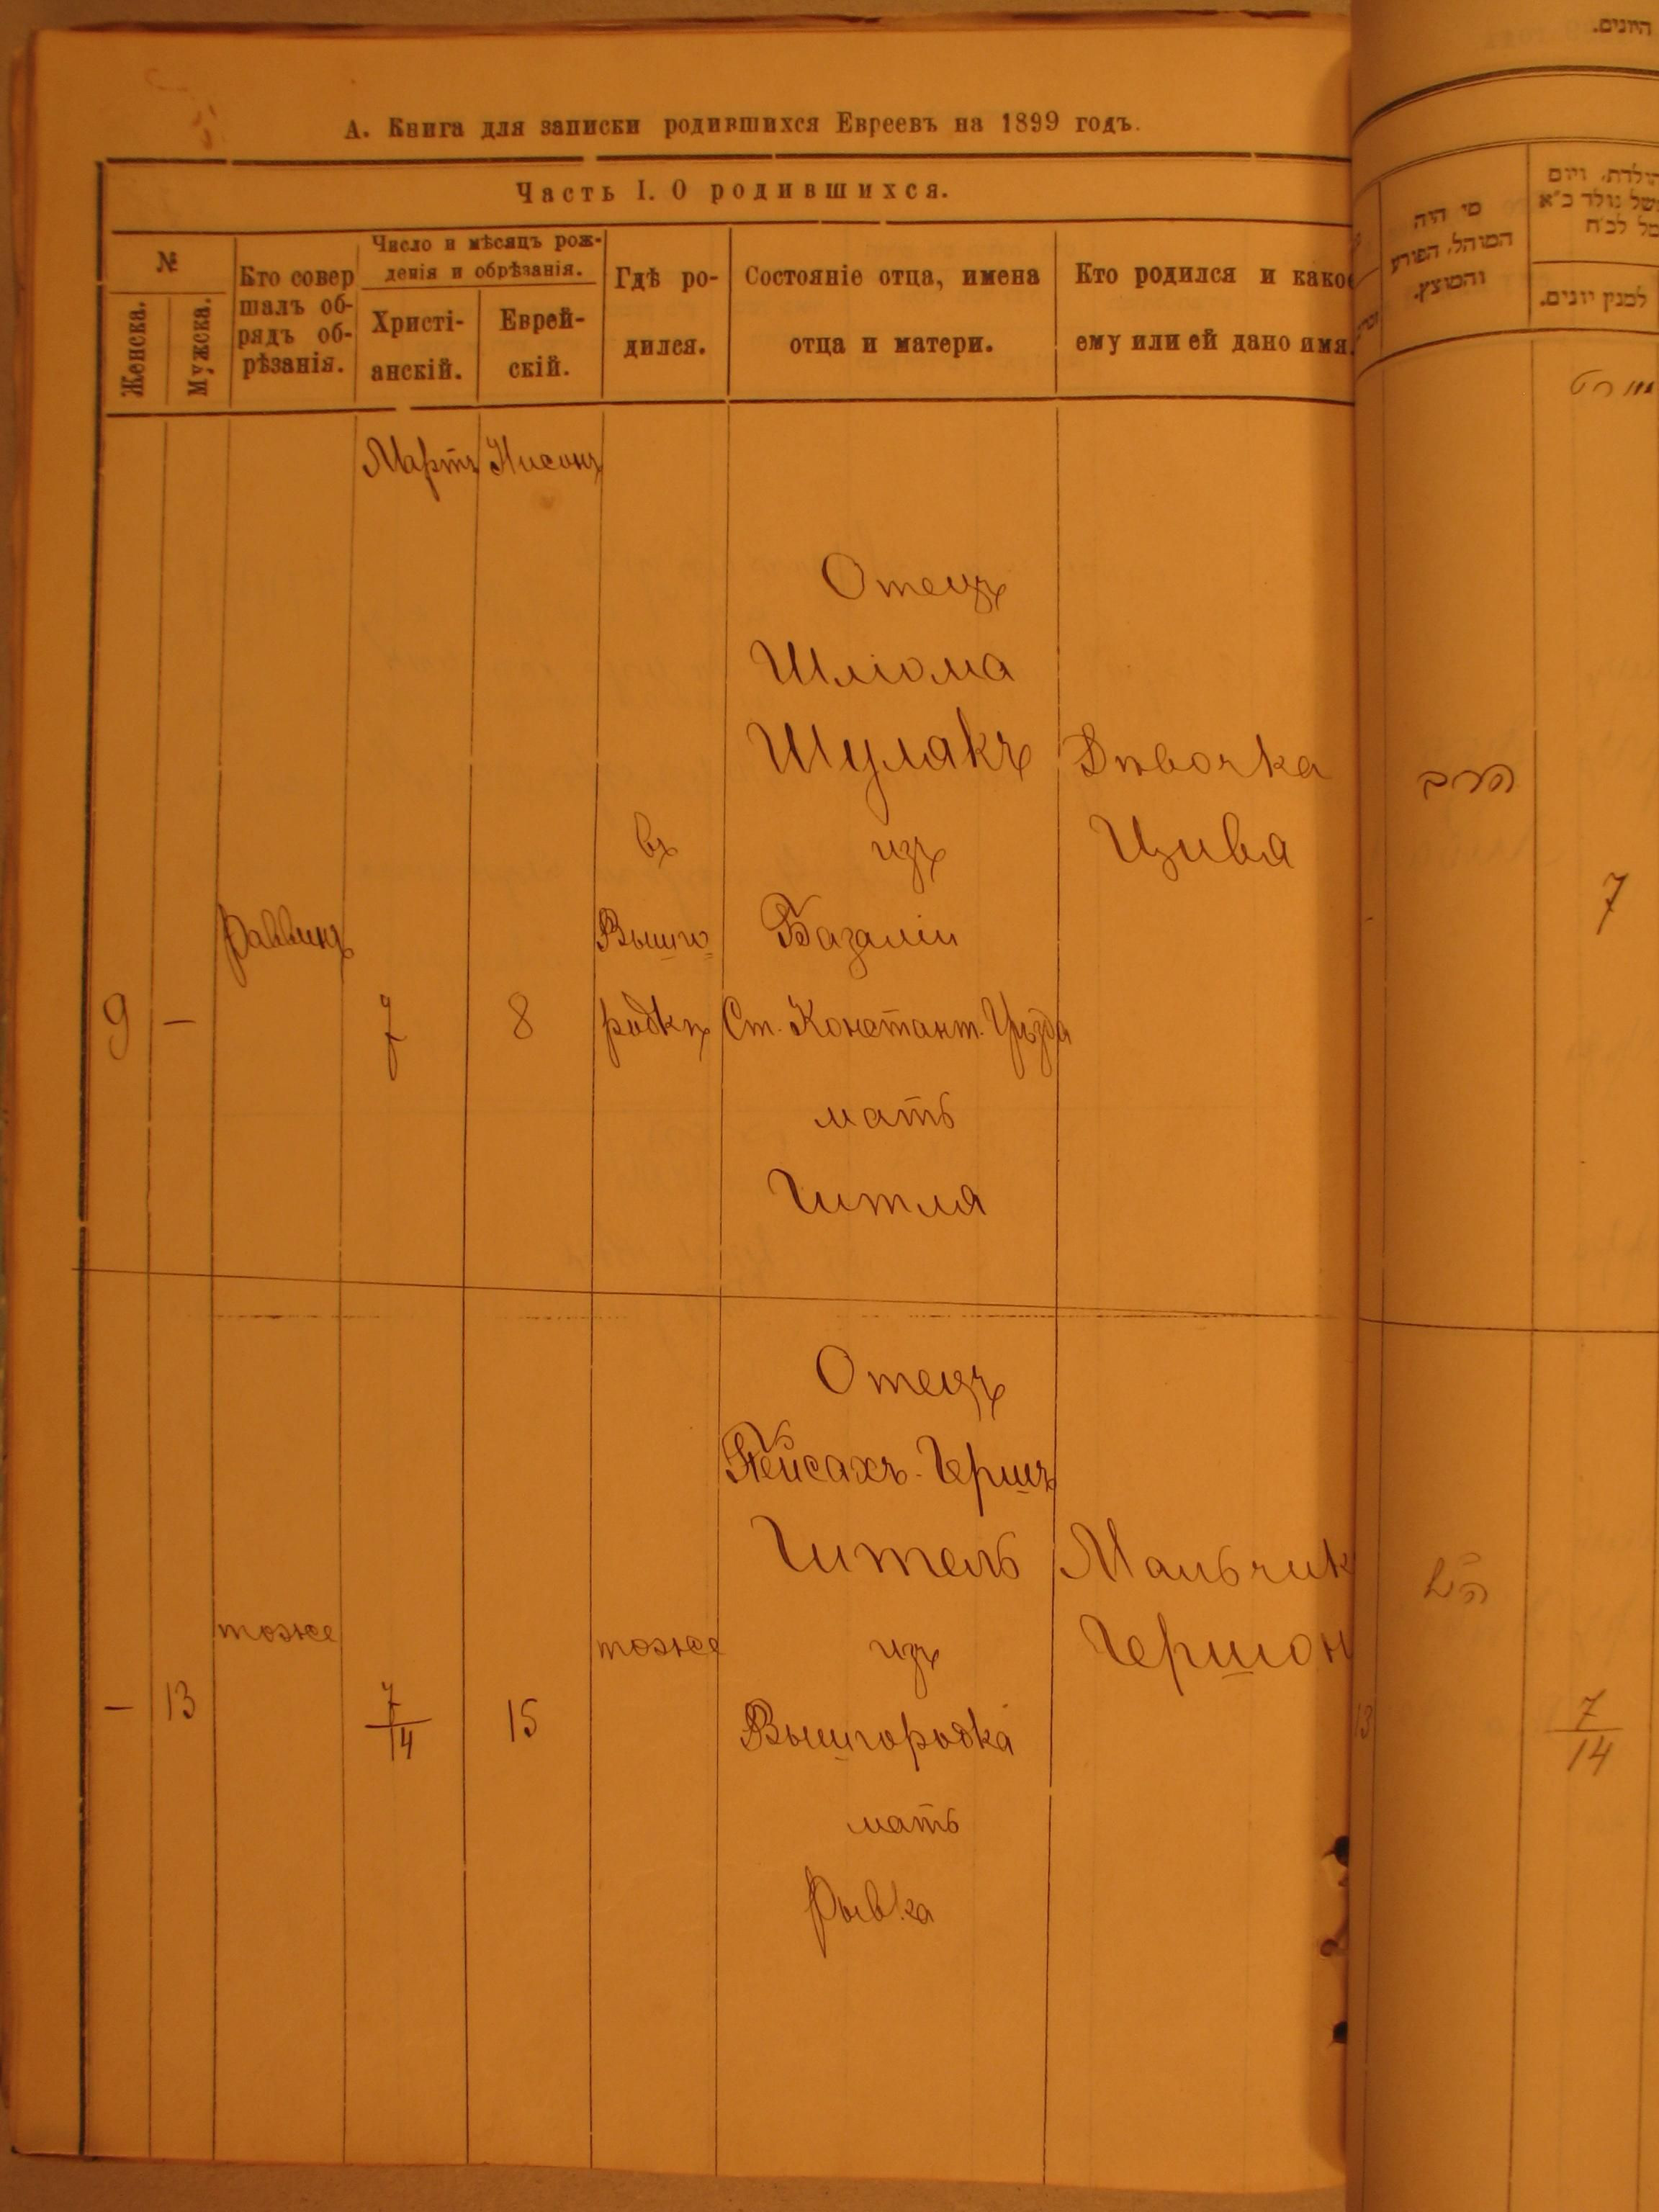 А. Книга для записки родившихся Евреевъ на 1899 годъ.
Часть I. О родившихся.
№
Женска.
Мужска.
Кто совер
шалъ об-
рядъ об-
рѣзанія.
Число и мѣсяцъ рож-
денія и обрѣзанія.
Христі-
анскій.
Еврей-
скій.
Гдѣ ро-
дился.
Состояніе отца, имена
отца и матери.
Кто родился и како
ему или ей дано имя.
Мартъ
Нисонъ
9
—
Раввинъ
7
8
въ
Вышго
родкѣ
Отецъ
Шліома
Шулякъ
изъ
Базаліи
Ст. Констант. Уѣзда
мать
Гитля
Дѣвочка
Цивя
—
13
тоже
7
14
15
тоже
Отецъ
Пейсахъ-Гершъ
Гитель
изъ
Вышгородка
мать
Рывка
Мальчик
Гершон
היונים.
מי היה
המוהל, הפורע
והמוצץ.
הולדת, ויום
למנין יונים.
מארט
הרב
7
13
7
14